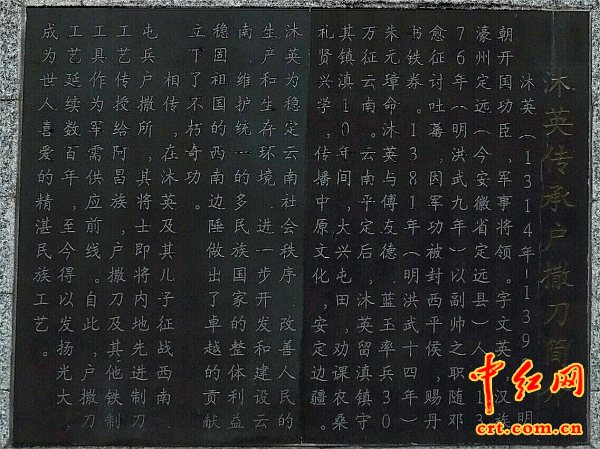 沐英传承户撒刀简
沐英(1314年-139 明
朝开国功臣,军事将领。字文英 汉族
濠州定远(今安徽省定远县)人 13
76年(明洪武九年)以副帅之职随邓
愈征讨吐蕃,因军功被封西平侯,赐丹
书铁券。1381年(明洪武十四年)
朱元璋命沐英与傅友德 蓝玉率兵30
万征云南。云南平定后,沐英留滇镇守
其镇滇10年间,大兴屯田,劝课农桑
礼贤兴学,传播中原文化,安定边疆。
沐英为稳定云南社会秩序 改善人民的
生产和生存环境 进一步开发和建设云
南 维护统一的多民族国家的整体利益
稳固祖国的西南边陲做出了卓越的贡献
立下了不朽奇功。
相传,在沐英及其儿子征战西南
屯兵户撒所,其将士即将内地先进制刀
工艺传授给阿昌族,户撒刀及其他铁制
工具作为军需供应前线。自此,户撒刀
工艺延续数百年,至今得以发扬光大,
成为世人喜爱的精湛民族工艺。
中红网
crt.com.cn